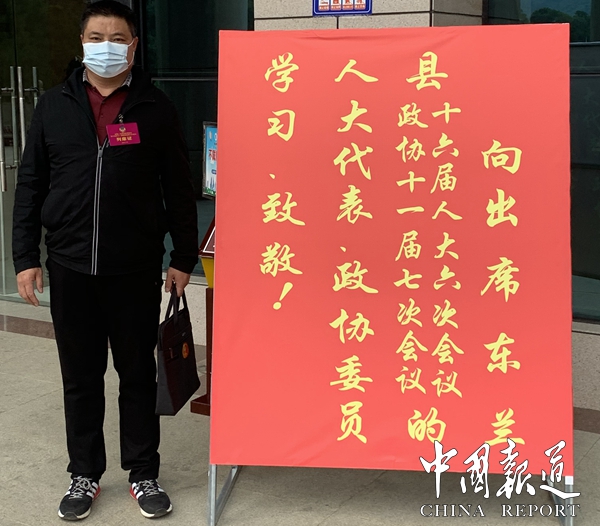 向出席东兰
县
十六届人大六次会议
政协十一届七次会议
的
人大代表、政协委员
学习、致敬！
中国报道
CHINA REPORT